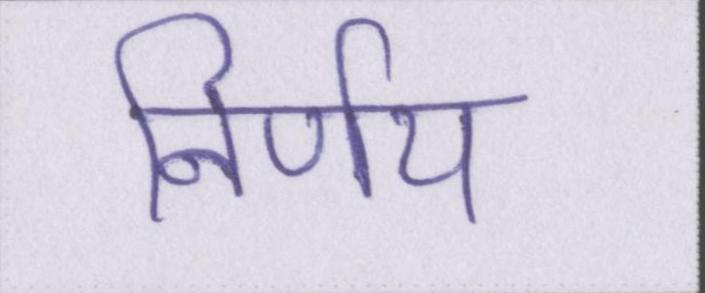 निर्णय